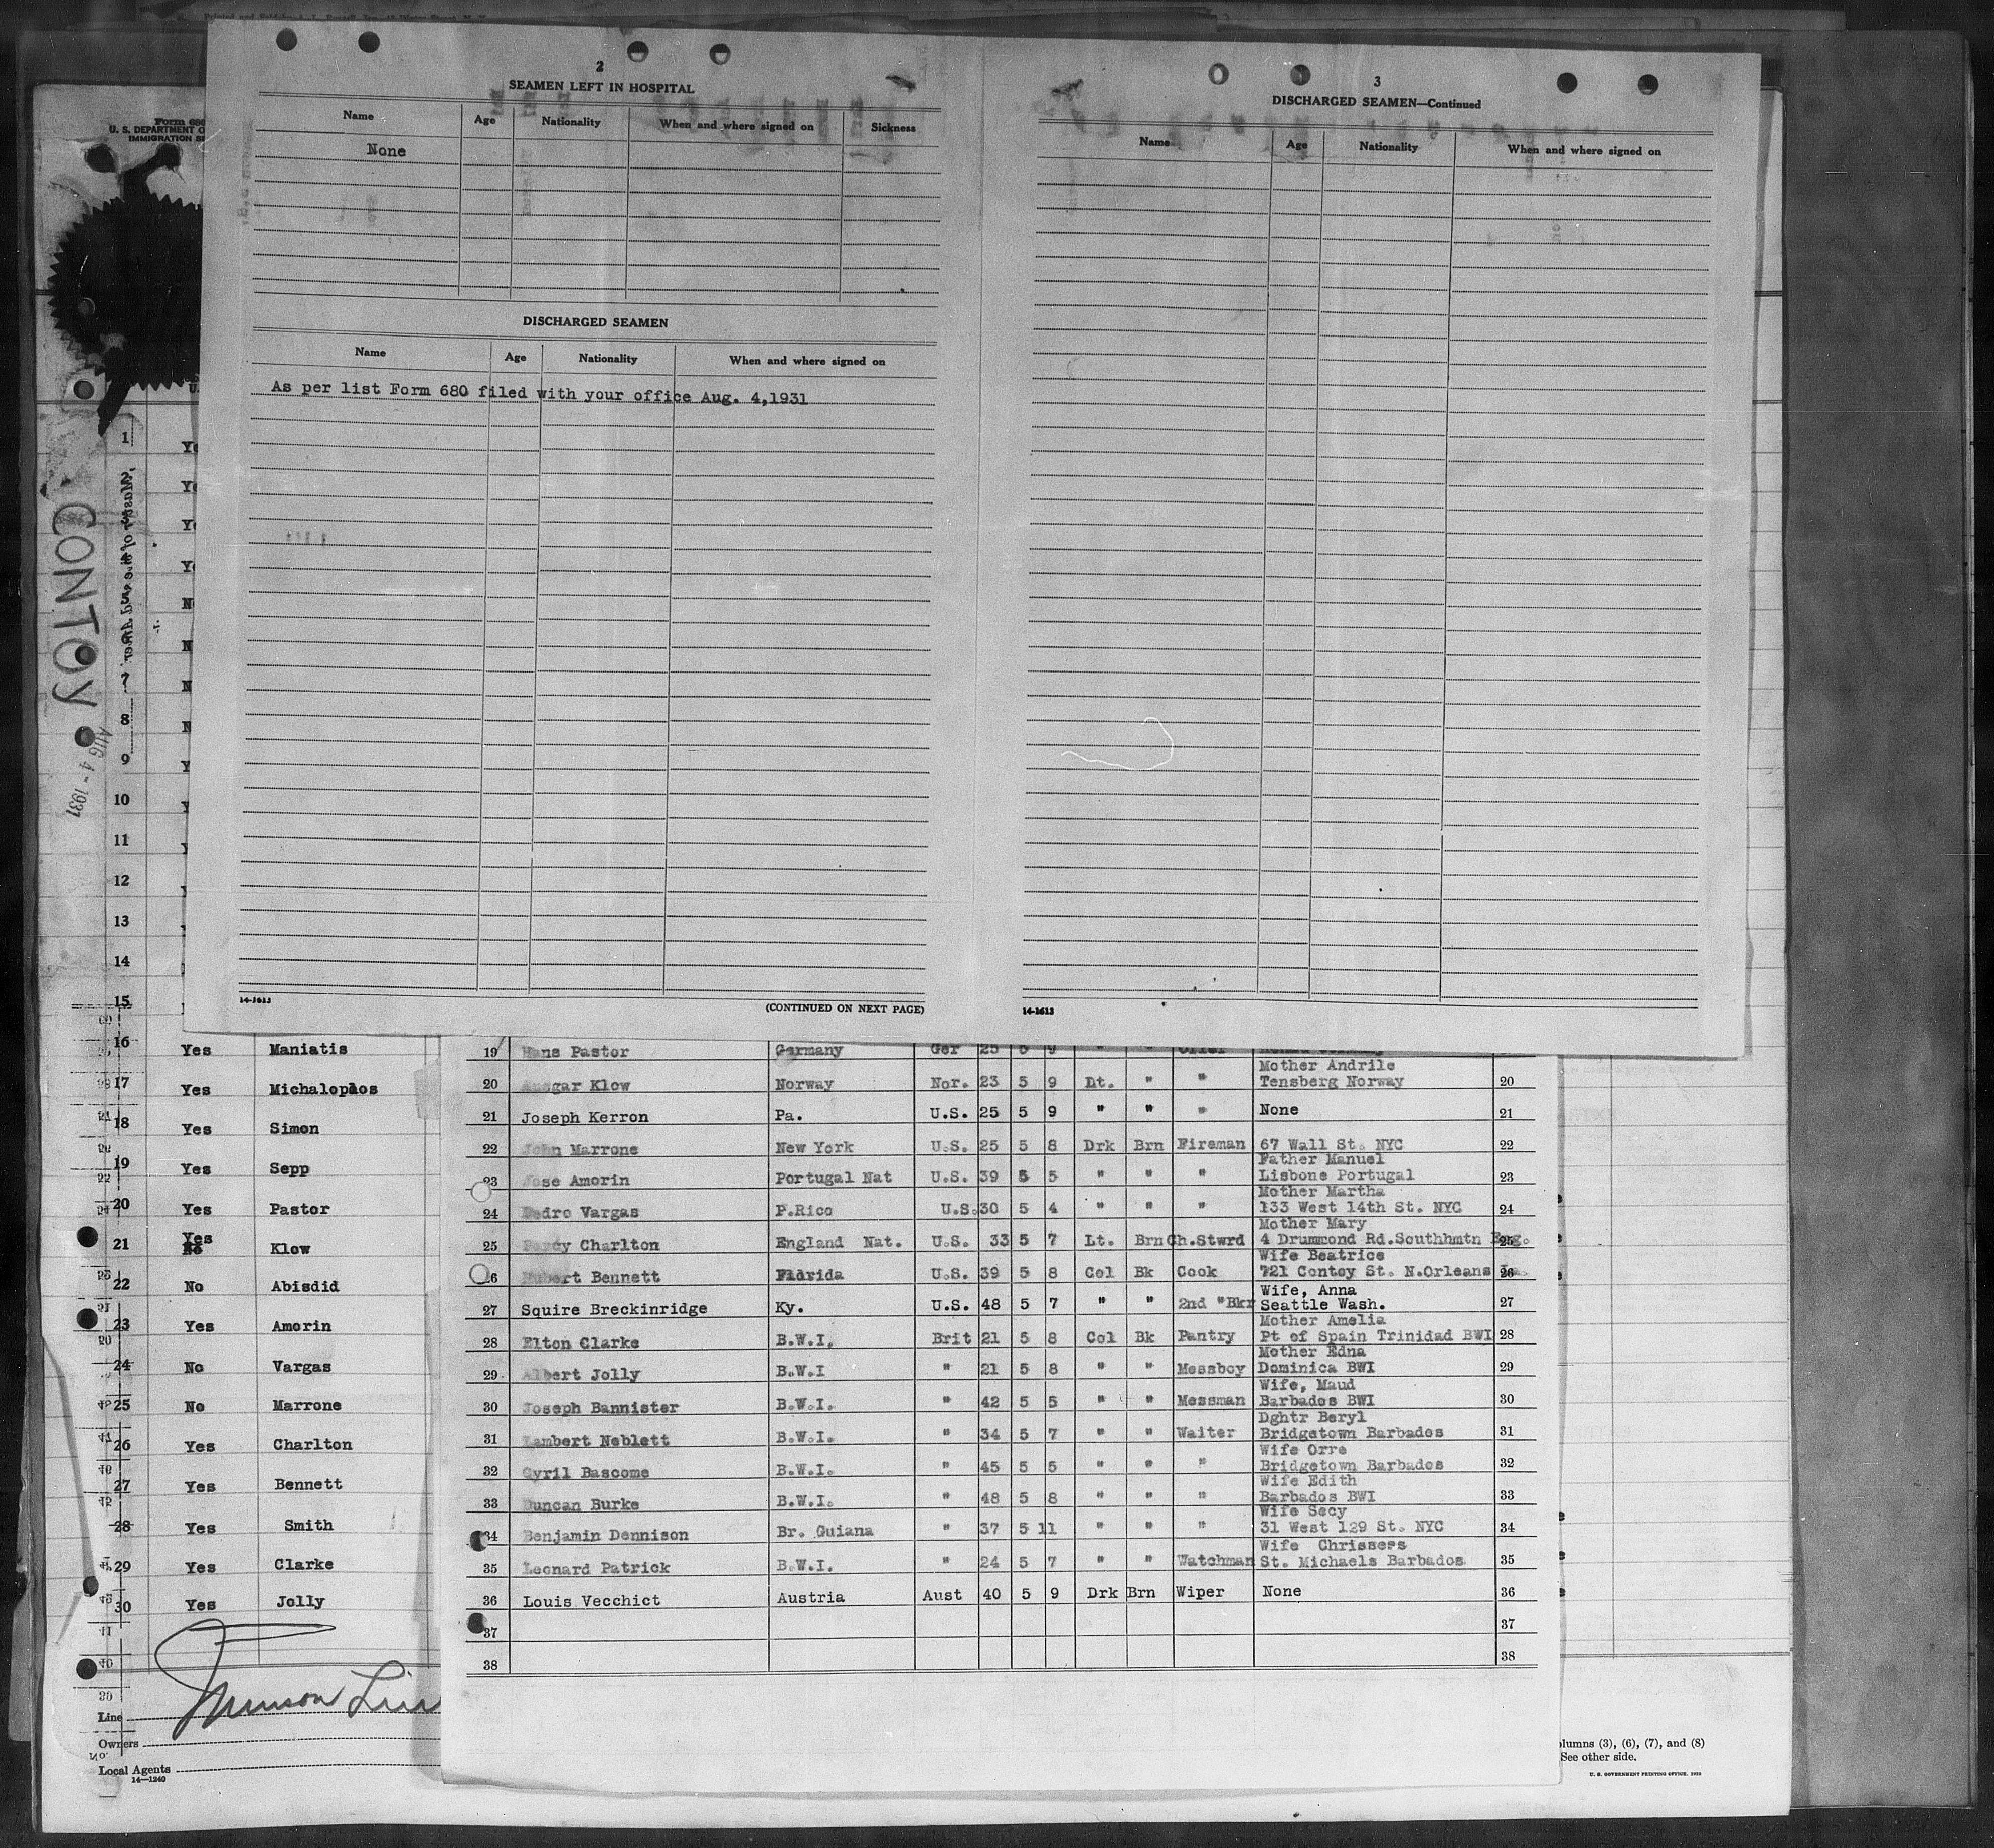 2
SEAMEN LEFT IN HOSPITAL
Name Age Nationality When and where signed on Sickness
None
DISCHARGED SEAMEN
Name Age Nationality When and where signed on
As per list Form 680 filed with your office Aug. 4,1931
14-1613 (CONTINUED ON NEXT PAGE)
3
DISCHARGED SEAMEN—Continued
Name Age Nationality When and where signed on
14-1613
Form 680
U. S. DEPARTMENT O
IMMIGRATION SE
CONTOY
AUG 4 - 1931
1
7
8
9
10
11
12
13
14
15
16 Yes Maniatis
17 Yes Michalopλos
18 Yes Simon
19 Yes Sepp
20 Yes Pastor
21 Yes No Klow
22 No Abisdid
23 Yes Amorin
24 No Vargas
25 No Marrone
26 Yes Charlton
27 Yes Bennett
28 Yes Smith
29 Yes Clarke
30 Yes Jolly
Line Munson Lin
Owners
Local Agents
14—1240
19 Hans Pastor Germany Ger 25 5 9 " " Oiler
Mother Andrile
20 Ansgar Klow Norway Nor. 23 5 9 Lt. " " Tensberg Norway 20
21 Joseph Kerron Pa. U.S. 25 5 9 " " " None 21
22 John Marrone New York U.S. 25 5 8 Drk Brn Fireman 67 Wall St. NYC 22
Father Manuel
23 Jose Amorin Portugal Nat U.S. 39 5 5 " " " Lisbone Portugal 23
Mother Martha
24 Pedro Vargas P.Rico U.S. 30 5 4 " " " 133 West 14th St. NYC 24
Mother Mary
25 Percy Charlton England Nat. U.S. 33 5 7 Lt. Brn Ch.Stwrd 4 Drummond Rd.Southhmtn Eng. 25
Wife Beatrice
26 Hubert Bennett Fldrida U.S. 39 5 8 Col Bk Cook 721 Contey St. N.Orleans La. 26
Wife, Anna
27 Squire Breckinridge Ky. U.S. 48 5 7 " " 2nd "Bkr Seattle Wash. 27
Mother Amelia
28 Elton Clarke B.W.I. Brit 21 5 8 Col Bk Pantry Pt of Spain Trinidad BWI 28
Mother Edna
29 Albert Jolly B.W.I " 21 5 8 " " Messboy Dominica BWI 29
Wife, Maud
30 Joseph Bannister B.W.I. " 42 5 5 " " Messman Barbados BWI 30
Dghtr Beryl
31 Lambert Neblett B.W.I. " 34 5 7 " " Waiter Bridgetown Barbados 31
Wife Orre
32 Cyril Bascome B.W.I. " 45 5 5 " " " Bridgetown Barbados 32
Wife Edith
33 Duncan Burke B.W.I. " 48 5 8 " " " Barbados BWI 33
Wife Secy
34 Benjamin Dennison Br. Guiana " 37 5 11 " " " 31 West 129 St. NYC 34
Wife Chrissers
35 Leonard Patrick B.W.I. " 24 5 7 " " Watchman St. Michaels Barbados 35
36 Louis Vecchict Austria Aust 40 5 9 Drk Brn Wiper None 36
37 37
38 38
olumns (3), (6), (7), and (8)
See other side.
U. S. GOVERNMENT PRINTING OFFICE